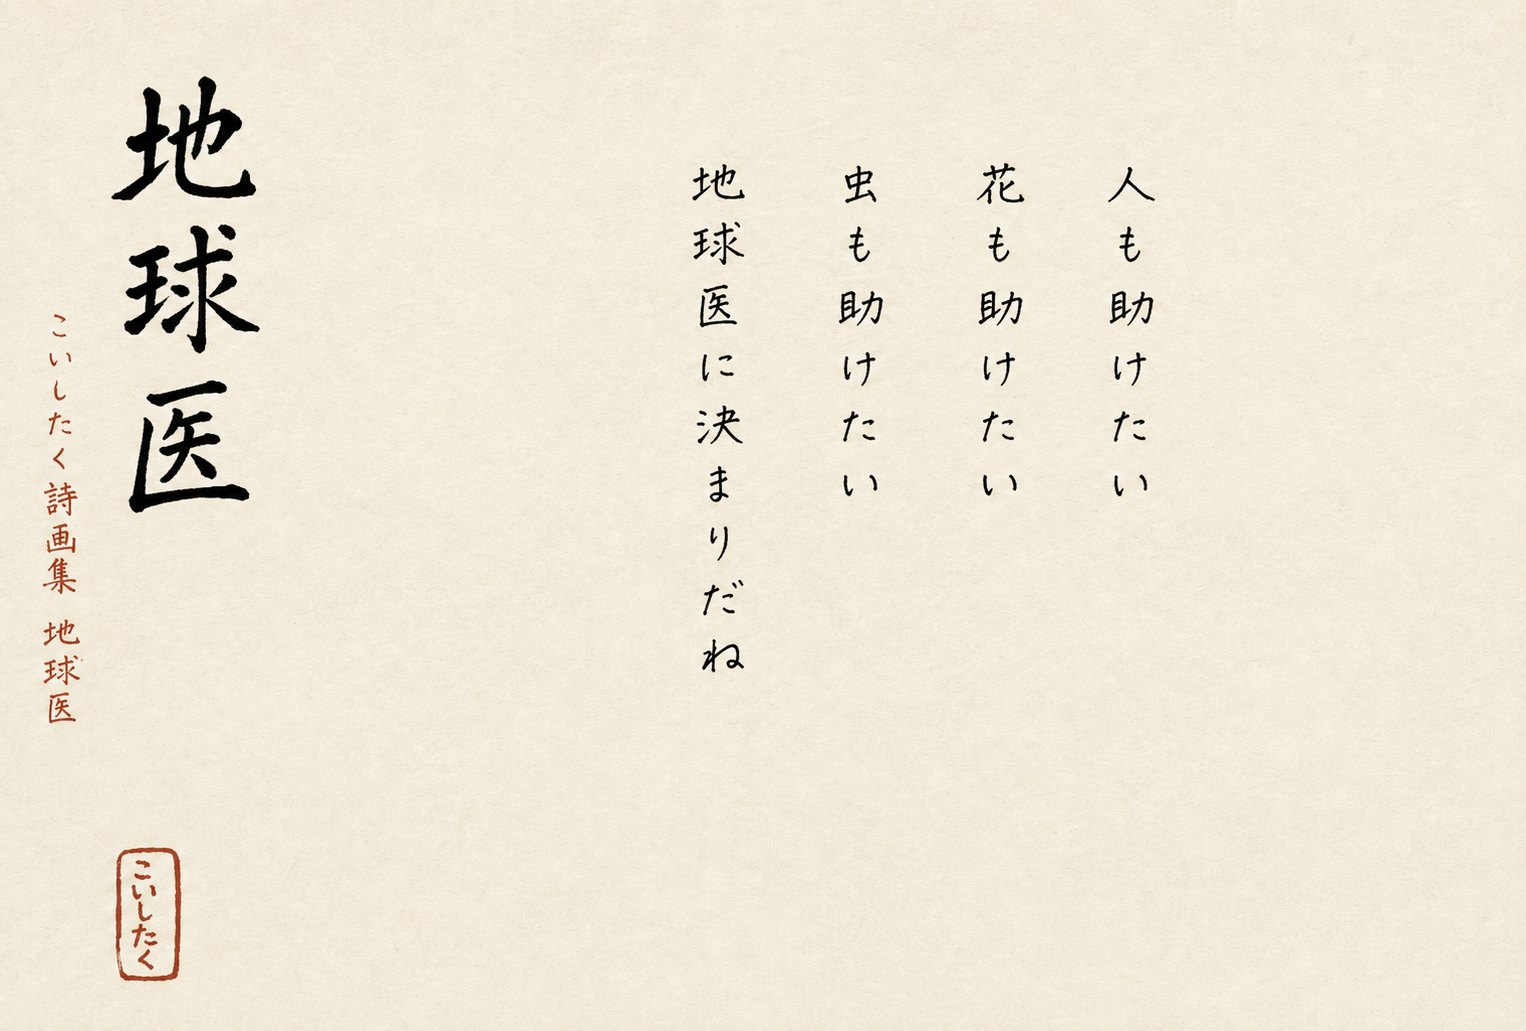 人も助けたい
花も助けたい
虫も助けたい
地球医に決まりだね
地球医
こいしたく詩画集 地球医
こいしたく